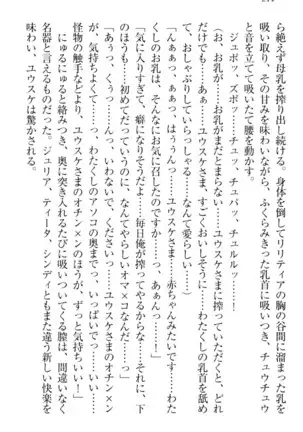 絶えず母乳を搾り出し続ける。身体を倒してリリティアの胸の谷間に溜まった乳を
吸い取り、その甘みを味わいながら、ふくらみきった乳首に吸いつき、チュウチュウ
と音を立てて吸いたてて腰を動かす。
ジュボッ、ズボッ、チュッ、チュパッ、チュルルッ……!
「お、お乳が……お乳がまだとまらない……ユウスケさまに搾っていただくと、どれ
だけでも……あぁ、ユウスケさま、すごくおいしそうに……わたくしの乳首を舐め
て、おしゃぶりしていらっしゃる……なんて愛らしい……」
「んぁぁっ、ぁっっ、はぅうんっ……ユウスケさま……赤ちゃんみたいです……わた
くしのお乳は、そんなにお気に召したのですか……っ」
「気に入りすぎて、癖になりそうだよ……毎日俺が搾ってやるからな……それに、下
のほうも……初めてだっていうのに、なんてやらしいオマ×コなんだ……っ」
「あぅっ、くぅっ……んっ、い、言わないで、くださいっ……ユウスケさまのオチン×ン
が、気持ちよくて……っ、わたくしのアソコの奥まで……っ、いっぱいでっ……いい……
怪物の触手などより、ユウスケさまのオチン×ンのほうが、ずっと気持ちいい……!」
にゅるにゅると絡みつき、奥に突き入れるたびに吸いついてくる膣は、間違いなく
名器と言えるものだった。ジュリア、ティータ、シンディともまた違う新しい快楽を
味わい、ユウスケは驚かされる。